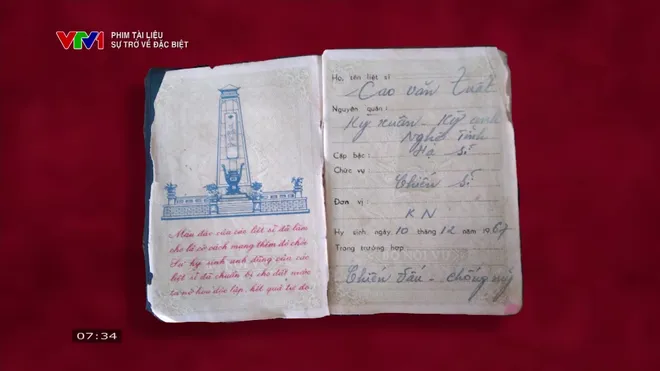 VTV1
PHIM TÀI LIỆU
SỰ TRỞ VỀ ĐẶC BIỆT
Máu đào của các liệt sĩ đã làm
cho lá cờ cách mạng thêm đỏ chói
Sự hy sinh anh dũng của các
liệt sĩ đã chuẩn bị cho đất nước
ta nở hoa độc lập, kết quả tự do.
Họ, tên liệt sĩ
Cao văn Tuất
Nguyên quán:
Kỳ xuân - Kỳ anh
Nghệ Tĩnh
Cấp bậc: Hạ sĩ
Chức vụ
Chiến sĩ
Đơn vị
KN
Hy sinh, ngày 10 tháng 12 năm 1967
Trong trường hợp:
BỘ NỘI VỤ
Chiến đấu - chống mỹ
07:34